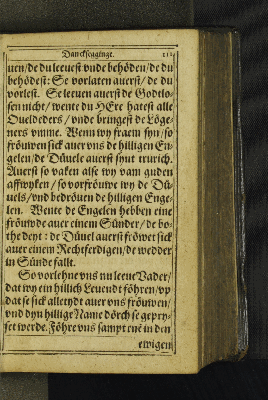 Dancksegginge.
uen / de du leuest vnde behöden / de du
behödest: Se vorlaten auerst / de du
vorlest. Se leuen auerst de Godtlo-
sen nicht / wente du HEre hatest alle
Oueldeders / vnde bringest de Löge-
ners vmme. Wenn wy fram syn / so
fröuwen sick auer vns de hilligen En-
gelen / de Düuele auerst synt trurich.
Auerst so vaken alse wy vam guden
affwyken / so vorfröuwe wy de Dü-
uels / vnd bedröuen de hilligen Enge-
len. Wente de Engelen hebben eine
fröuwde auer einem Sünder / de bo-
the deyt: de Düuel auerst fröwet sick
auer einem Rechtferdigen / de wedder
in Sünde fallt.
So vorlehne vns nu leeue Vader /
dat wy ein hillich Leuendt föhren / vp
dat se sick alletydt auer vns fröuwen /
vnd dyn hillige Name dörch se gepry-
set werde. Föhre vns sampt en in den
ewigen